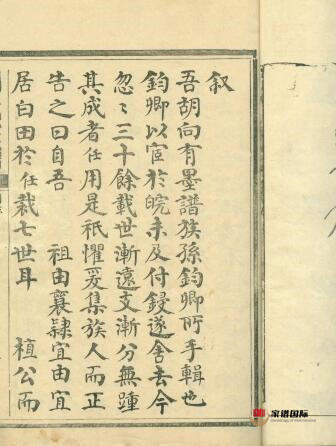 叙
吾胡向有墨譜族孫鈞卿所手輯也
鈞卿以宦於皖未及付鋟遂舍去今
忽〻三十餘載世漸遠支漸分無踵
其成者任用是祇懼爰集族人而正
告之曰自吾 祖由襄隸宜由宜
居白田於任裁七世耳 植公而
家谱国际
Genealogy of International